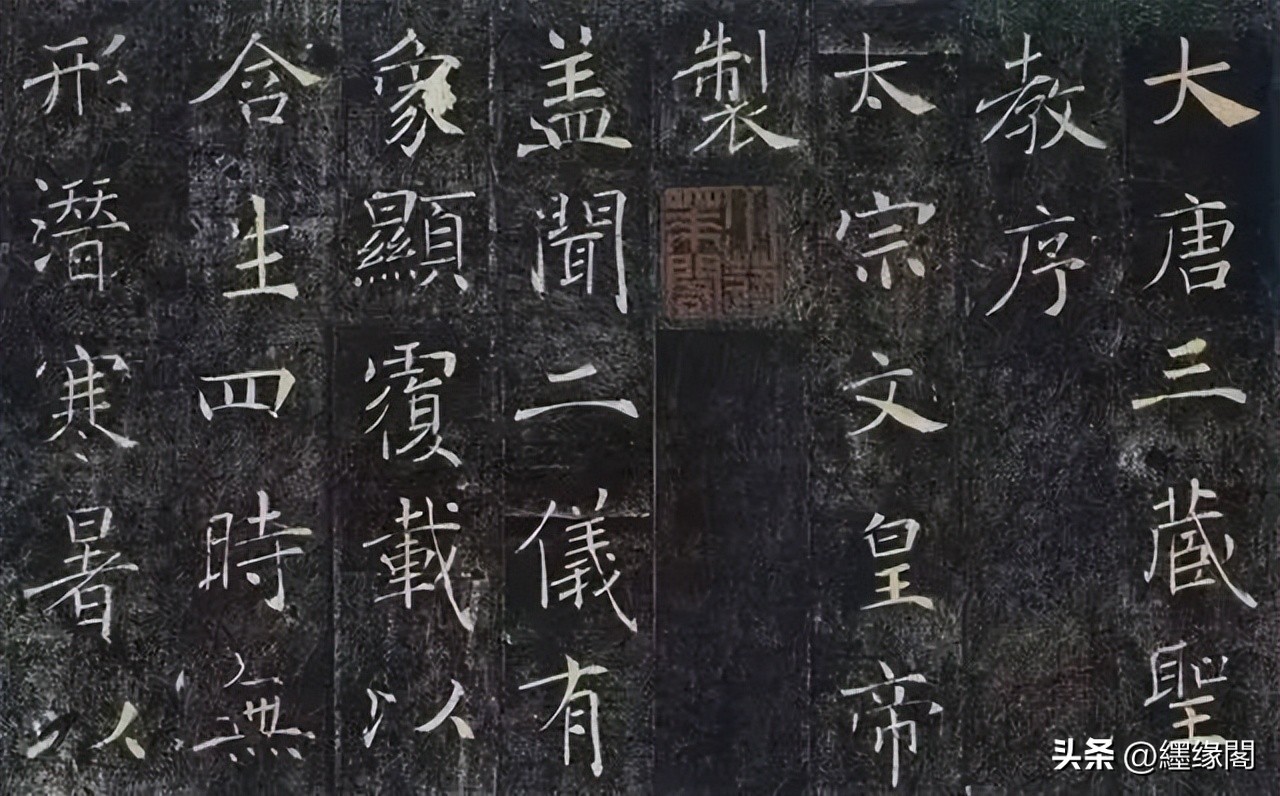 大唐三藏聖
教序
太宗文皇帝
製
盖聞二儀有
象顯覆載以
含生四時無
形潛寒暑以
头条 @纆缘閣